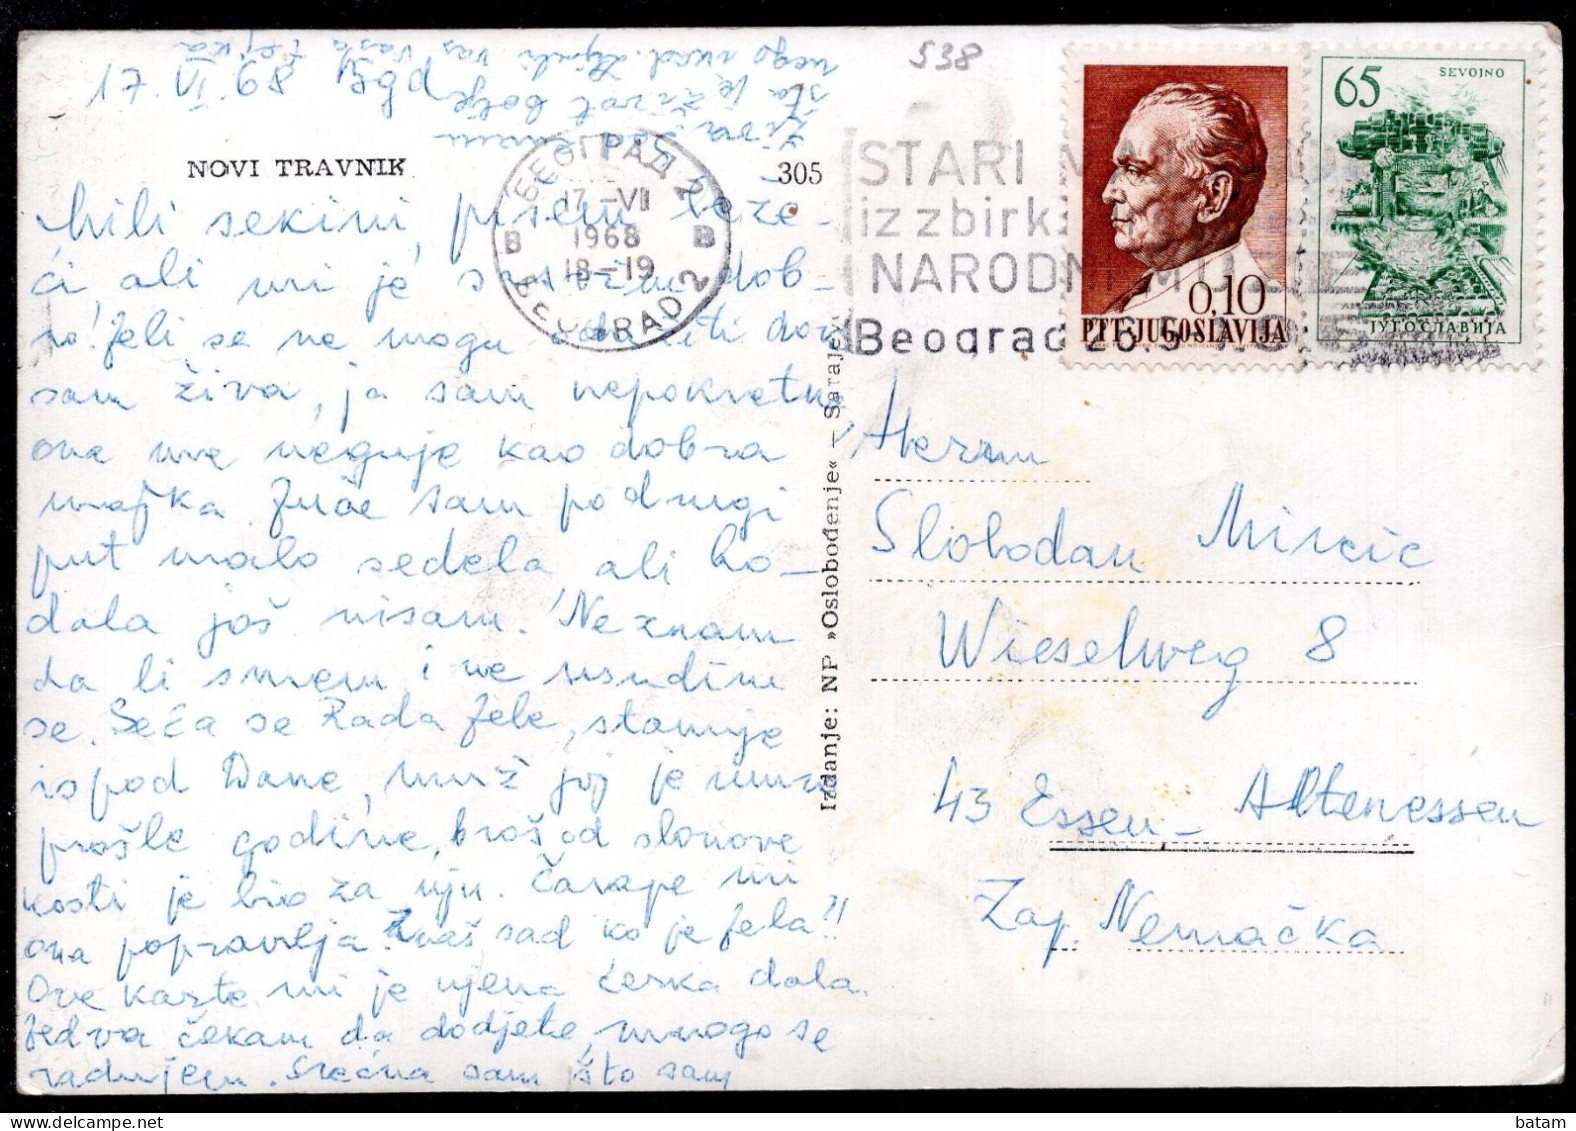 538
17. VI. 68 Bgd
NOVI TRAVNIK
305
БЕОГРАД 2
17.-VI
1968
18-19
B B
BEOGRAD 2
STARI
iz zbirk
NARODN MUZE
Beograd 26.5
0,10
PTT JUGOSLAVIJA
65
SEVOJNO
ЈУГОСЛАВИЈА
Mili sekini, pisem leže-
ći ali mi je s srcem dob-
ro! Jeli se ne mogu
sam živa, ja sam nepokretna
ona me neguje kao dobra
majka. Juče sam po drugi
put malo sedela, ali ho-
dala još nisam. Neznam
da li smem i ne usudim
se. Seća se Rada Jele, stanuje
ispod Dane, muž joj je umro
prošle godine, broš od slonove
kosti je bio za nju. Čarape mi
ona popravlja. Znaš sad ko je Jela?!
Ove karte mi je njena ćerka dala.
Jedva čekam da dodjete, mnogo se
radujem. Srećna sam što sam
živa
sta je život bolje
nego ikad. Ljubi vas vaša
Izdanje: NP »Oslobođenje« — Sarajevo
Herrn
Slobodan Mirčić
Wieselweg 8
43 Essen - Altenessen
Zap. Nemačka
batam
www.delcampe.net